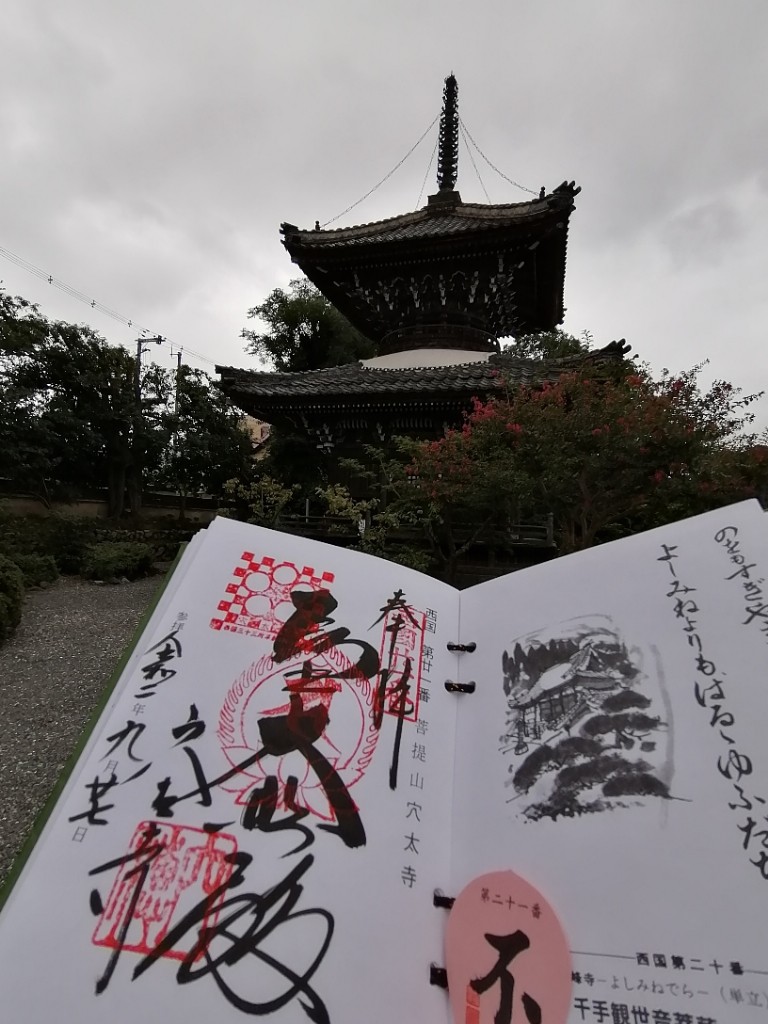 のをもすぎ
よしみねよりもはるゝゆふだち
西国 第廿一番 菩提山穴太寺
奉拝
大悲殿
穴太寺
参拝 令和二年九月廿日
第二十一番
不
西国第二十番
峰寺－よしみねでら－（単立）
千手観世音菩薩